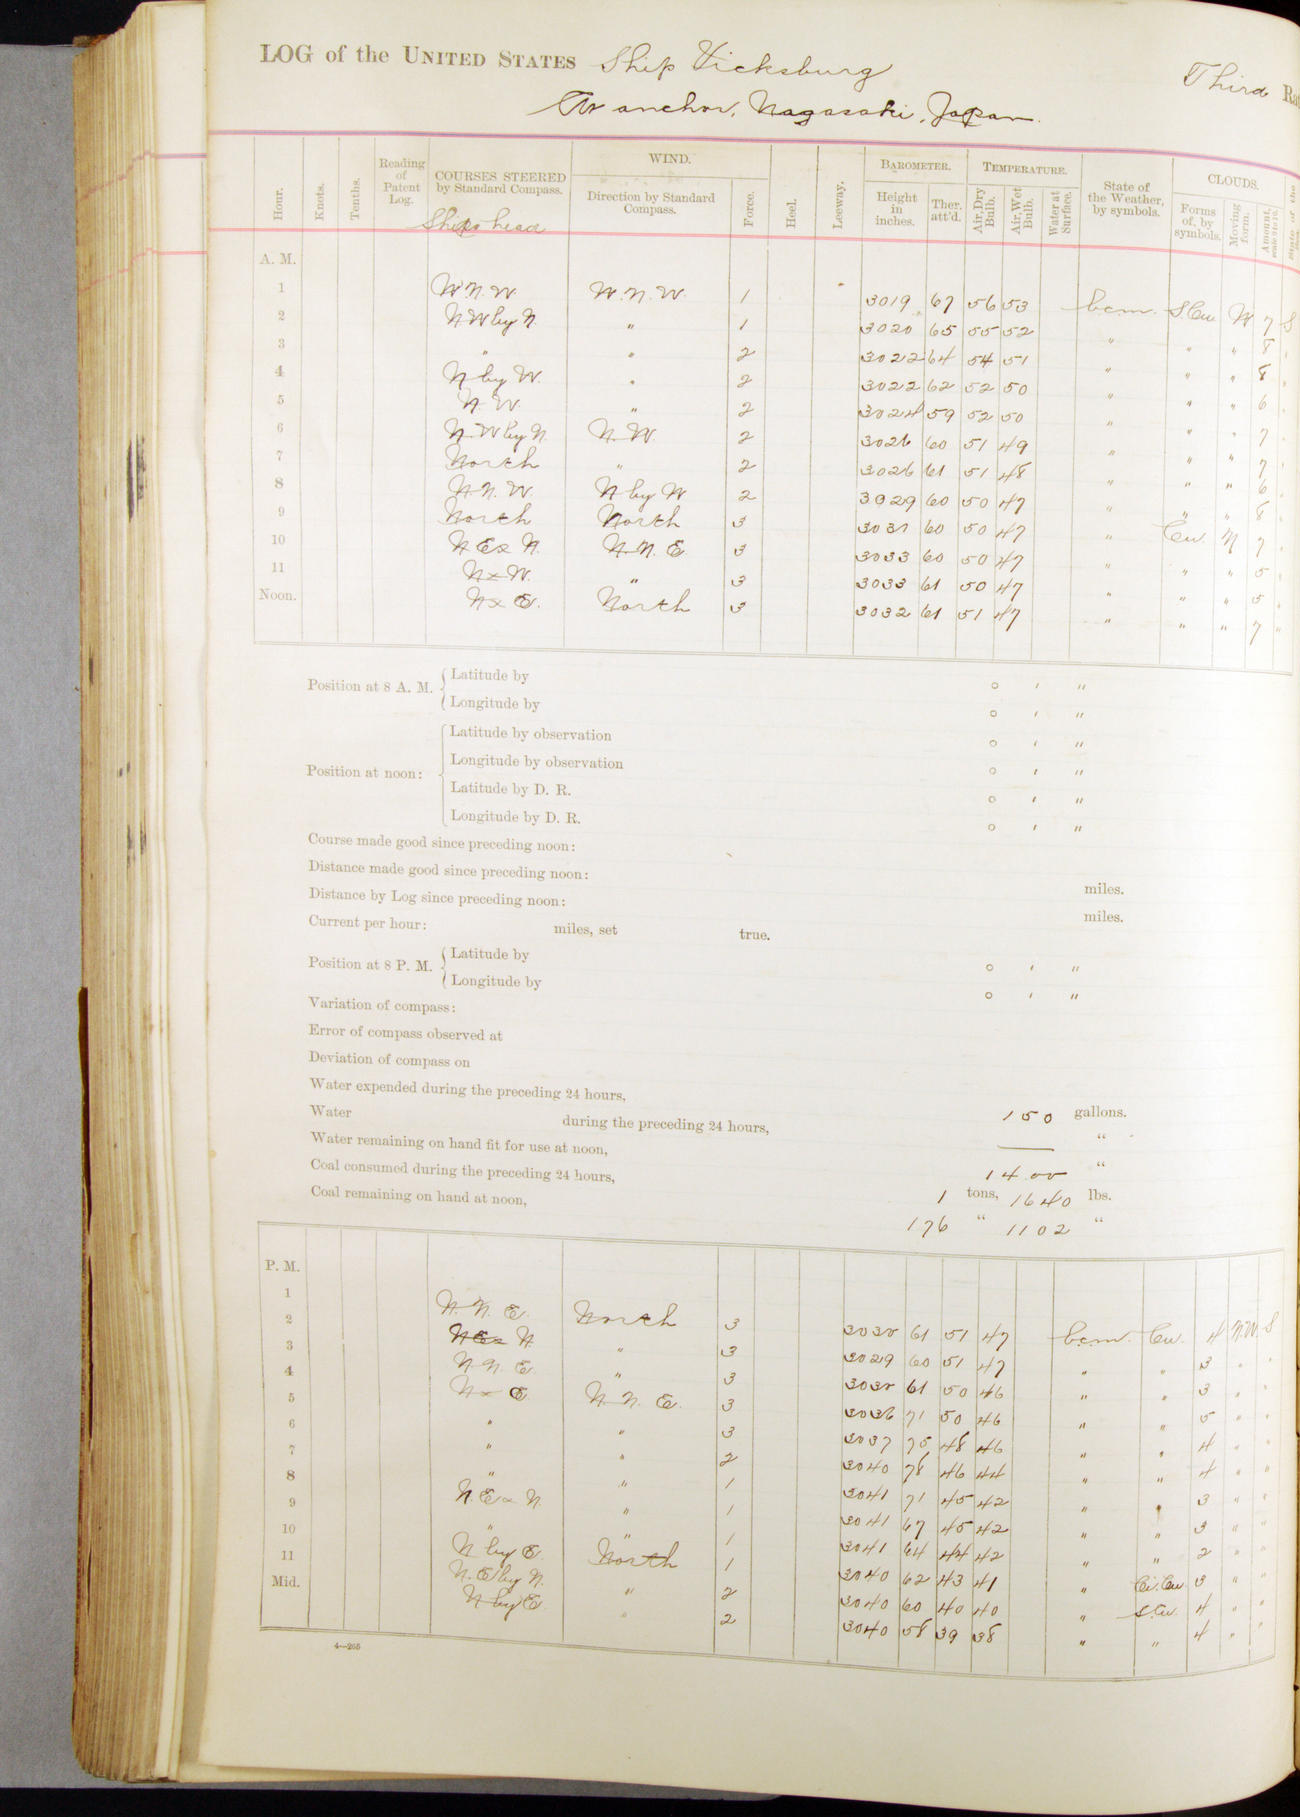 LOG of the UNITED STATES Ship Vicksburg Third Ra
At anchor, Nagasaki, Japan.
Hour. Knots. Tenths. Reading of Patent Log. COURSES STEERED by Standard Compass. WIND. Direction by Standard Compass. Force. Heel. Leeway. BAROMETER. Height in inches. Ther. att'd. TEMPERATURE. Air, Dry Bulb. Air, Wet Bulb. Water at Surface. State of the Weather, by symbols. CLOUDS. Forms of, by symbols. Moving form. Amount, scale 0 to 10. State of the
Ship's head
A. M.
1 W.N.W. W.N.W. 1 3019 67 56 53 bcm. S.Cu. W 7 S
2 NW by N. " 1 3020 65 55 52 " " " 8 "
3 " " 2 3022 64 54 51 " " " 8 "
4 N by W. " 2 3022 62 52 50 " " " 6 "
5 N.W. " 2 3024 59 52 50 " " " 7 "
6 N.W by N. N.W. 2 3026 60 51 49 " " " 7 "
7 North " 2 3026 61 51 48 " " " 6 "
8 N.N.W. N by W 2 3029 60 50 47 " " " 8 "
9 North North 3 3031 60 50 47 " Cu. N 7 "
10 N E x N. N.N.E. 3 3033 60 50 47 " " " 5 "
11 N x W. " 3 3033 61 50 47 " " " 5 "
Noon. N x E. North 3 3032 61 51 47 " " " 7 "
Position at 8 A. M. { Latitude by ° ' "
Longitude by ° ' "
Position at noon: { Latitude by observation ° ' "
Longitude by observation ° ' "
Latitude by D. R. ° ' "
Longitude by D. R. ° ' "
Course made good since preceding noon:
Distance made good since preceding noon: miles.
Distance by Log since preceding noon: miles.
Current per hour: miles, set true.
Position at 8 P. M. { Latitude by ° ' "
Longitude by ° ' "
Variation of compass:
Error of compass observed at
Deviation of compass on
Water expended during the preceding 24 hours, 150 gallons.
Water during the preceding 24 hours, — "
Water remaining on hand fit for use at noon, 1400 "
Coal consumed during the preceding 24 hours, 1 tons, 1640 lbs.
Coal remaining on hand at noon, 176 " 1102 "
P. M.
1 N.N.E. North 3 3030 61 51 47 bcm. Cu. 4 N.W. S
2 N E x N. " 3 3029 60 51 47 " " 3 " "
3 N.N.E. " 3 3030 61 50 46 " " 3 " "
4 N x E. N.N.E. 3 3036 71 50 46 " " 5 " "
5 " " 3 3037 75 48 46 " " 4 " "
6 " " 2 3040 78 46 44 " " 4 " "
7 " " 1 3041 71 45 42 " " 3 " "
8 N.E x N. " 1 3041 67 45 42 " " 3 " "
9 " " 1 3041 64 44 42 " " 2 " "
10 N by E. North 1 3040 62 43 41 " Ci.Cu. 3 " "
11 N.E by N. " 2 3040 60 40 40 " S.Cu. 4 " "
Mid. N by E. " 2 3040 58 39 38 " " 4 " "
4—265